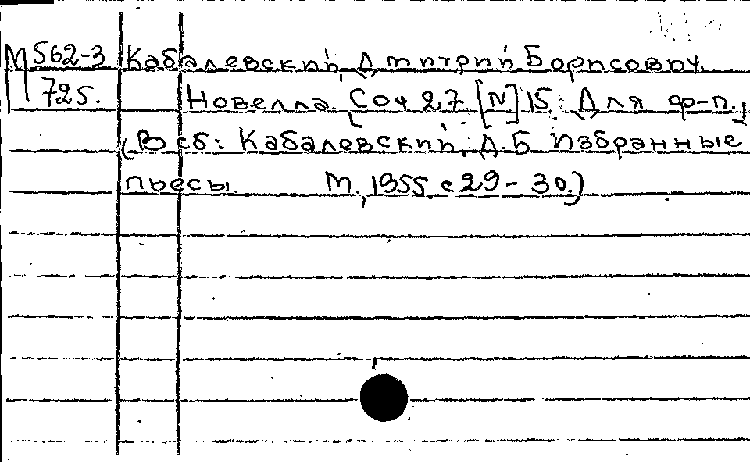 М 562-3 Кабалевский, Дмитрий Борисович.
725. Новелла. Соч 27 [N] 15. Для ф-п.
(В сб: Кабалевский, Д.Б Избранные
пьесы. М., 1955. с 29-30.)